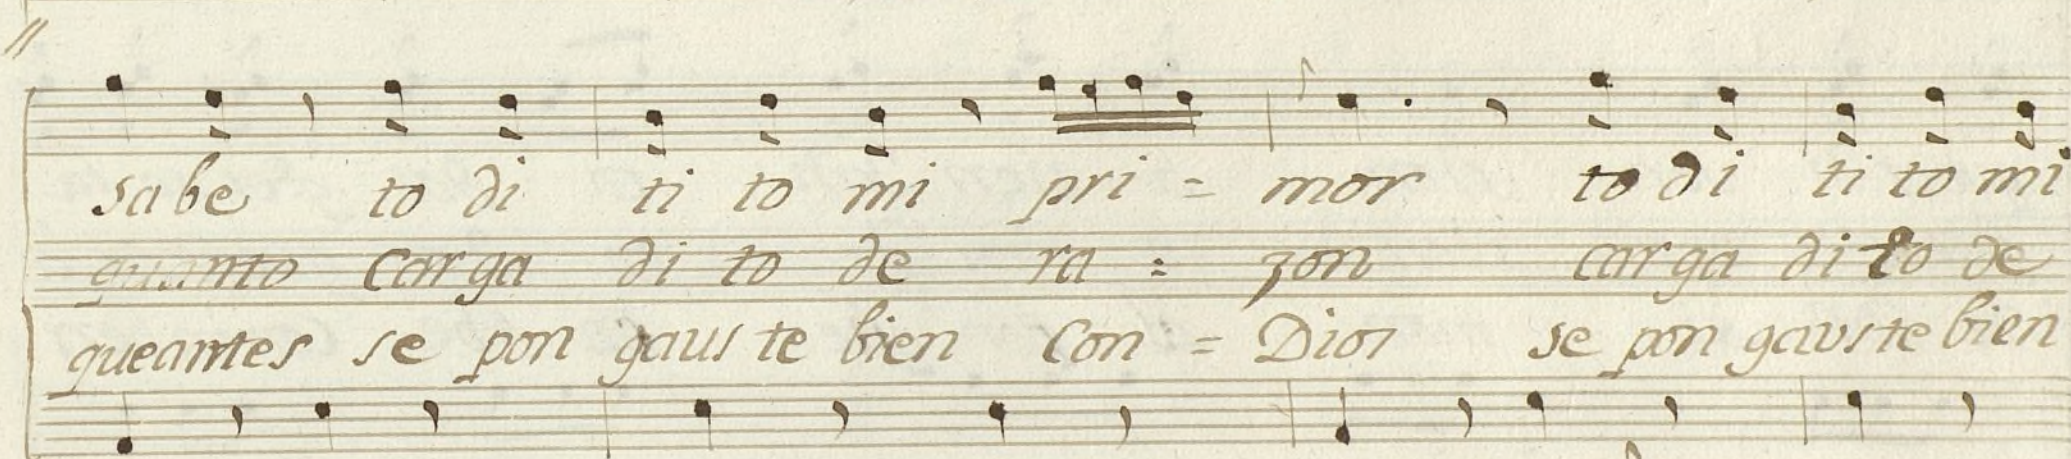 sabe to di ti to mi pri = mor to di ti to mi
quanto carga di to de ra = zon carga di to de
queantes se pon gaus te bien con = Dios se pon gauste bien